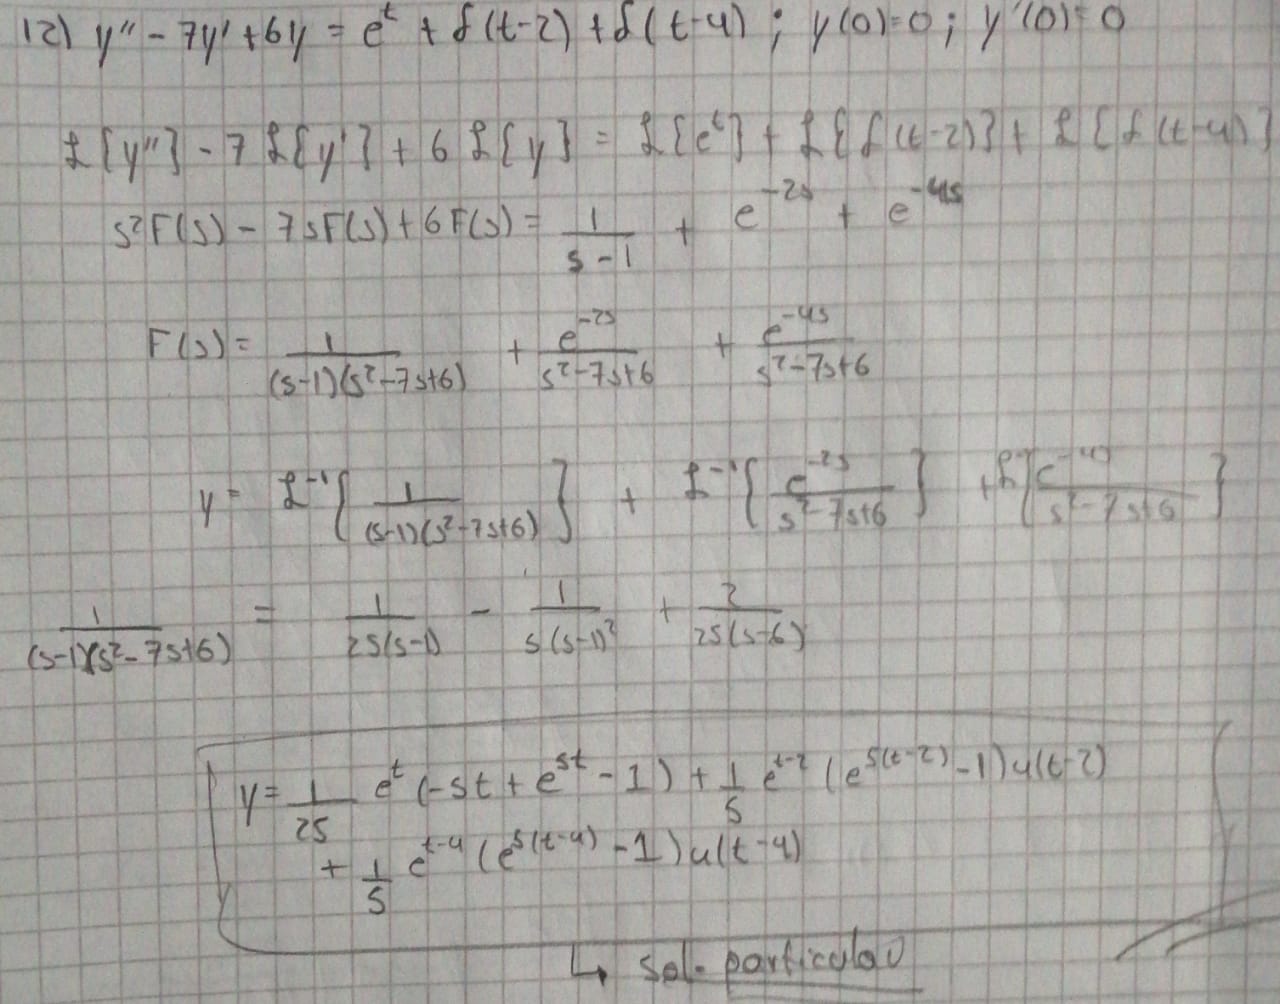 12) y'' - 7y' + 6y = e^t + δ(t-2) + δ(t-4) ; y(0)=0 ; y'(0)=0
£{y''} - 7 £{y'} + 6 £{y} = £{e^t} + £{δ(t-2)} + £{δ(t-4)}
s²F(s) - 7sF(s) + 6F(s) = 1/(s-1) + e^{-2s} + e^{-4s}
F(s) = 1/((s-1)(s²-7s+6)) + e^{-2s}/(s²-7s+6) + e^{-4s}/(s²-7s+6)
y = £^{-1}{1/((s-1)(s²-7s+6))} + £^{-1}{e^{-2s}/(s²-7s+6)} + £{e^{-4s}/(s²-7s+6)}
1/((s-1)(s²-7s+6)) = 1/(25(s-1)) - 1/(5(s-1)²) + 2/(25(s-6))
y = 1/25 e^t (-5t + e^{5t} - 1) + 1/5 e^{t-2} (e^{5(t-2)} - 1) u(t-2)
+ 1/5 e^{t-4} (e^{5(t-4)} - 1) u(t-4)
↳ sol. particular